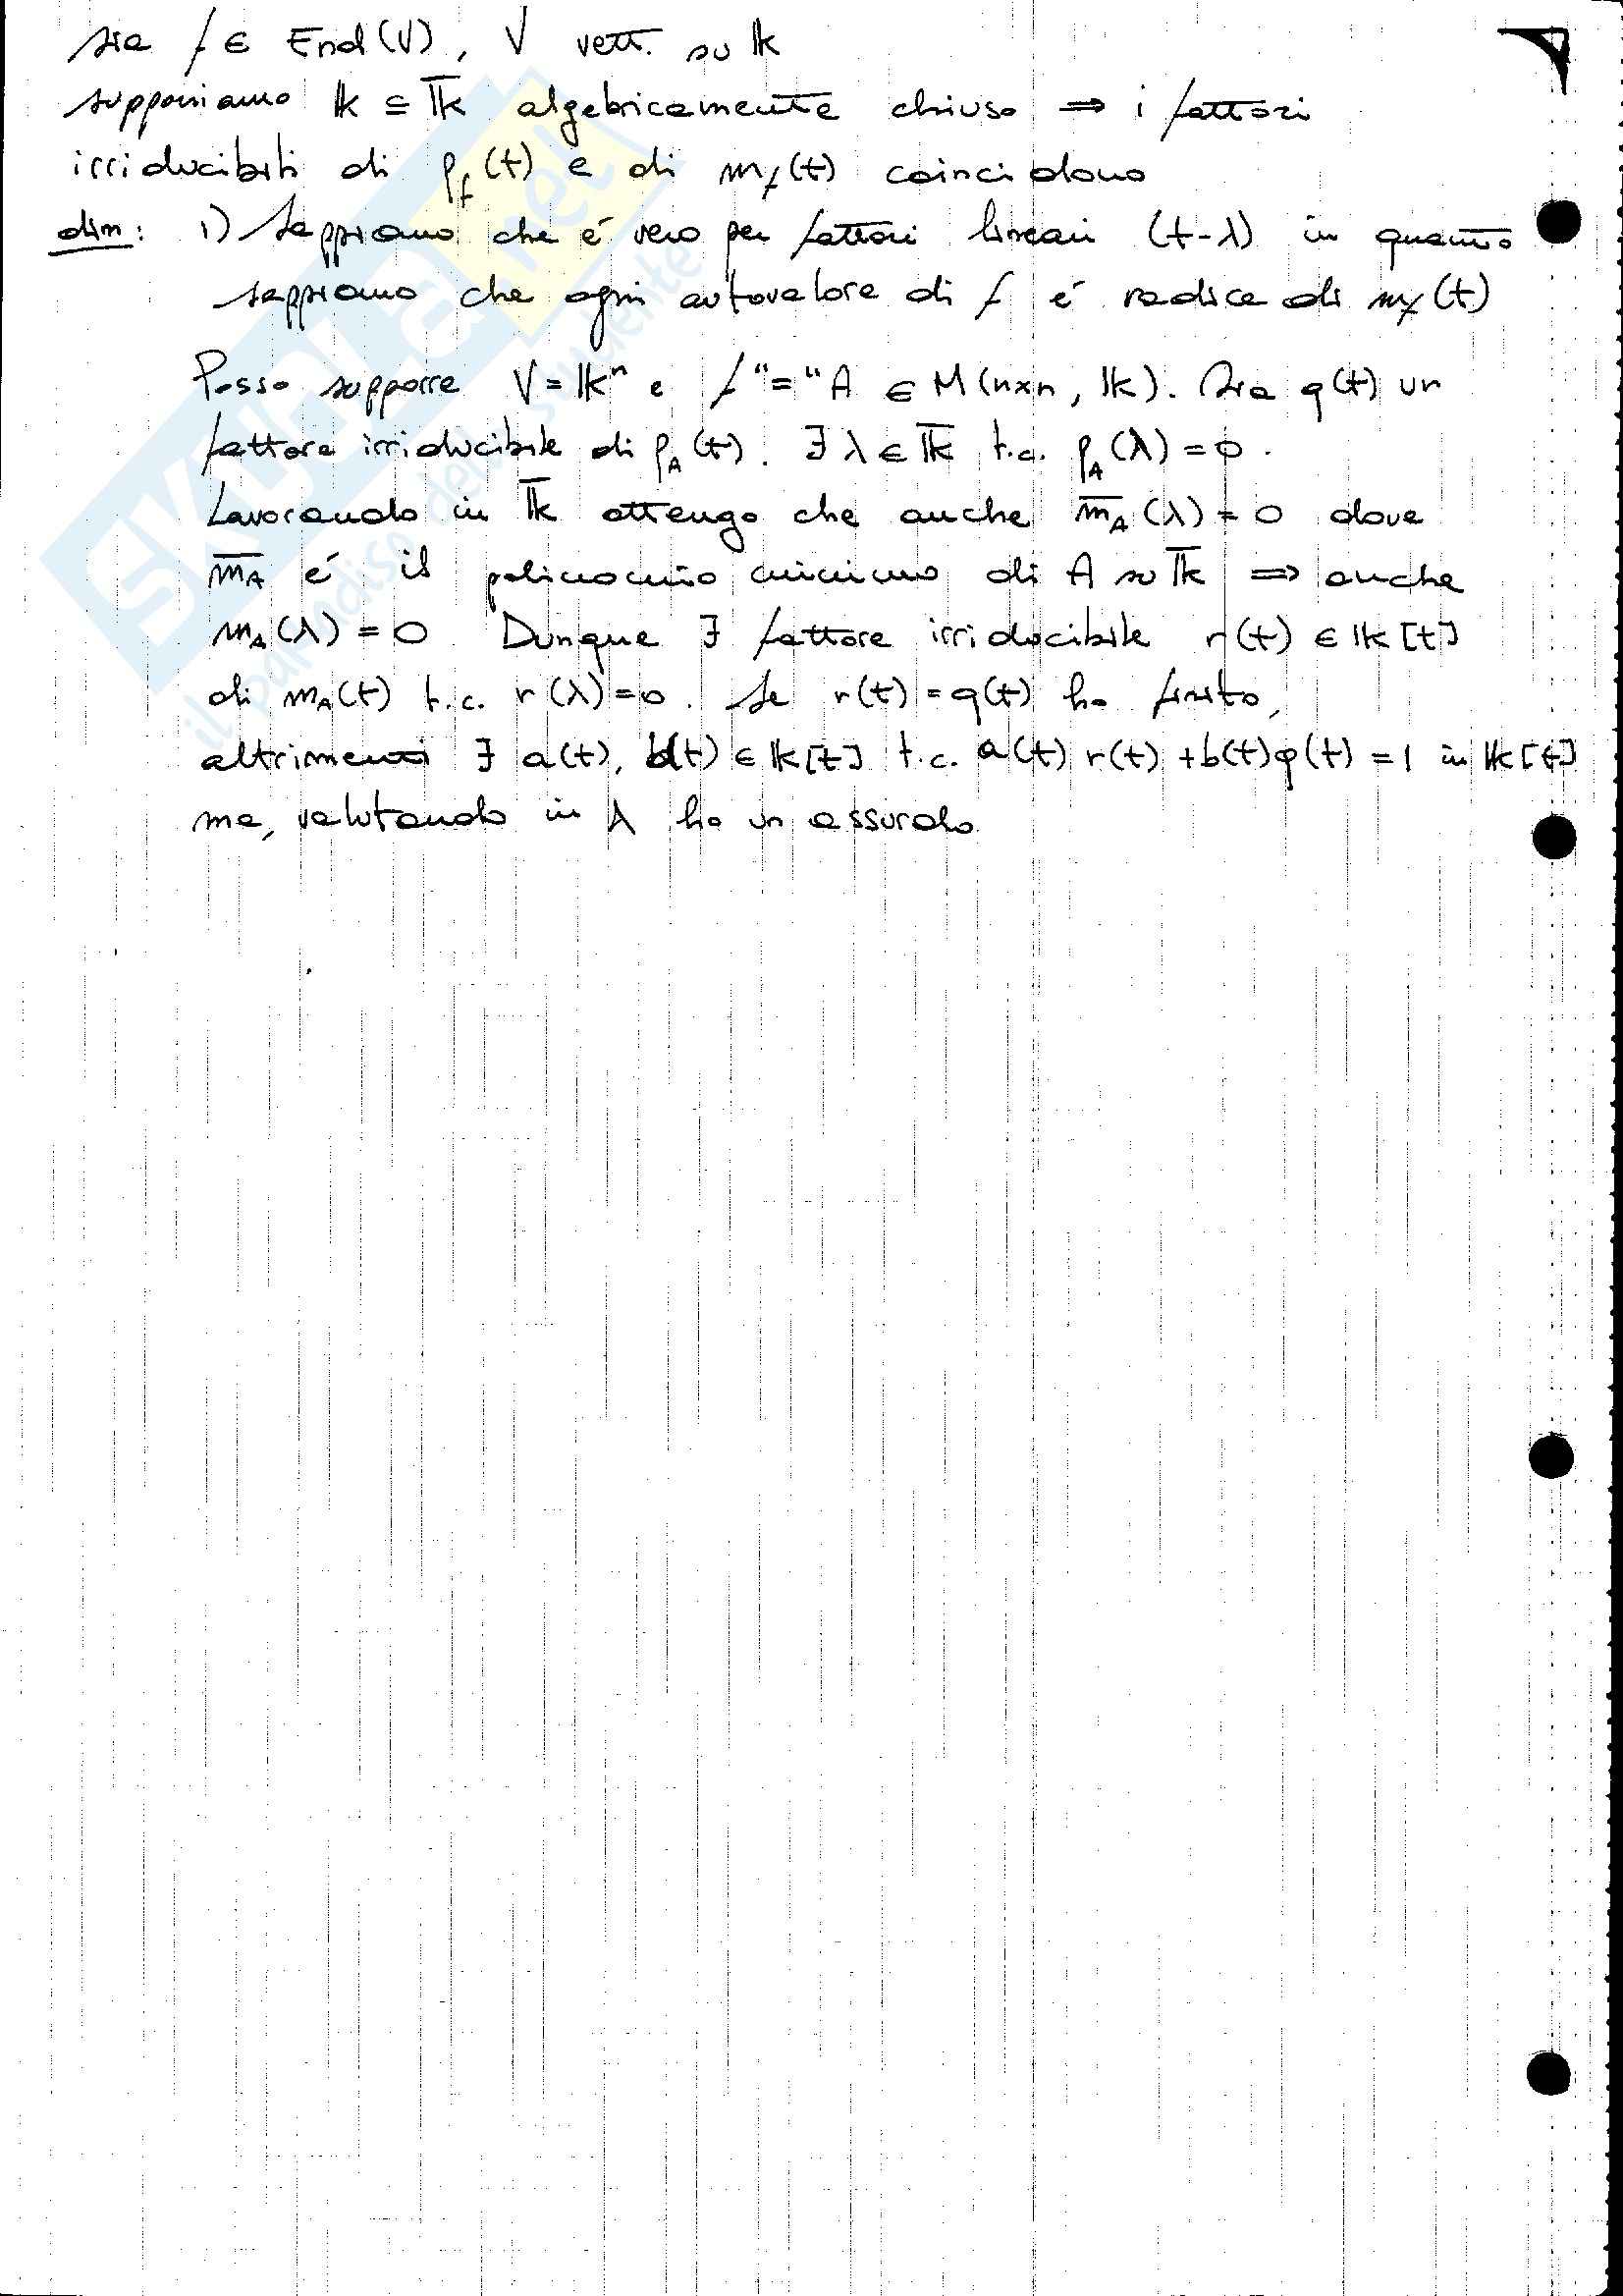 sia f ∈ End(V), V vett. su 𝕜
supponiamo 𝕜 ⊆ 𝕜̅ algebricamente chiuso ⇒ i fattori
irriducibili di p_f(t) e di m_f(t) coincidono
dim: 1) Sappiamo che é vero per fattori lineari (t-λ) in quanto
sappiamo che ogni autovalore di f é radice di m_f(t)
Posso supporre V = 𝕜ⁿ e f "=" A ∈ M(n×n, 𝕜). Sia q(t) un
fattore irriducibile di p_A(t). ∃ λ ∈ 𝕜̅ t.c. p_A(λ) = 0.
Lavorando in 𝕜̅ ottengo che anche m̅_A(λ) = 0 dove
m̅_A é il polinomio minimo di A su 𝕜̅ ⇒ anche
m_A(λ) = 0 Dunque ∃ fattore irriducibile r(t) ∈ 𝕜[t]
di m_A(t) t.c. r(λ)=0. Se r(t) = q(t) ho finito,
altrimenti ∃ a(t), b(t) ∈ 𝕜[t] t.c. a(t) r(t) + b(t) q(t) = 1 in 𝕜[t]
ma, valutando in λ ho un assurdo
SKUOLA.net
il paradiso dello studente